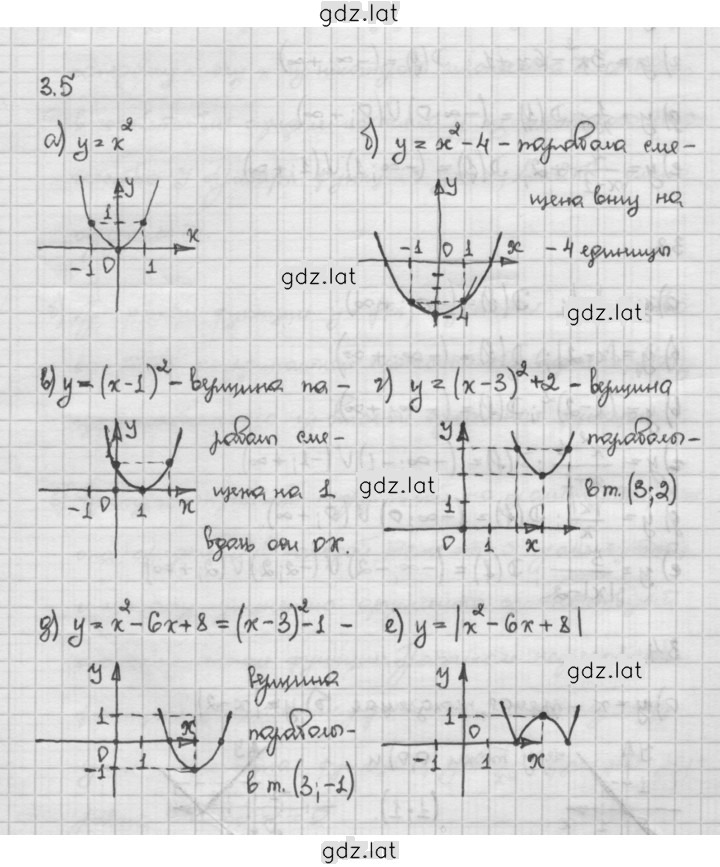 gdz.lat
3.5
а) y = x²
б) y = x² - 4 - парабола сме-
щена вниз на
- 4 единицы
y
1
x
-1 0 1
y
-1 0 1 x
-4
gdz.lat
gdz.lat
в) y = (x-1)² - вершина па-
раболы сме-
щена на 1
вдоль оси OX.
y
0
-1 1 x
г) y = (x-3)² + 2 - вершина
параболы -
в т. (3; 2)
y
1
0 1 x
gdz.lat
д) y = x² - 6x + 8 = (x-3)² - 1 -
вершина
параболы -
в т. (3; -1)
y
1
x
0 1
-1
е) y = |x² - 6x + 8|
gdz.lat
y
1
0
-1 1 x
gdz.lat